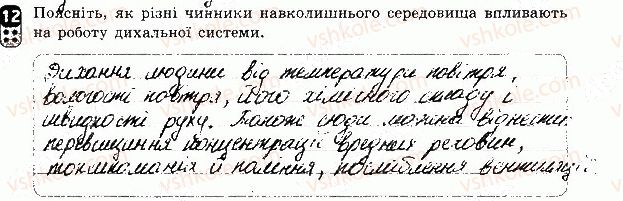 12 Поясніть, як різні чинники навколишнього середовища впливають
на роботу дихальної системи.
Дихання людини від температури повітря,
вологості повітря, його хімічного складу і
швидкості руху. Також сюди можна віднести
перевищення концентрації вредних реговин,
токсикоманія й паління, послаблення вентиляції